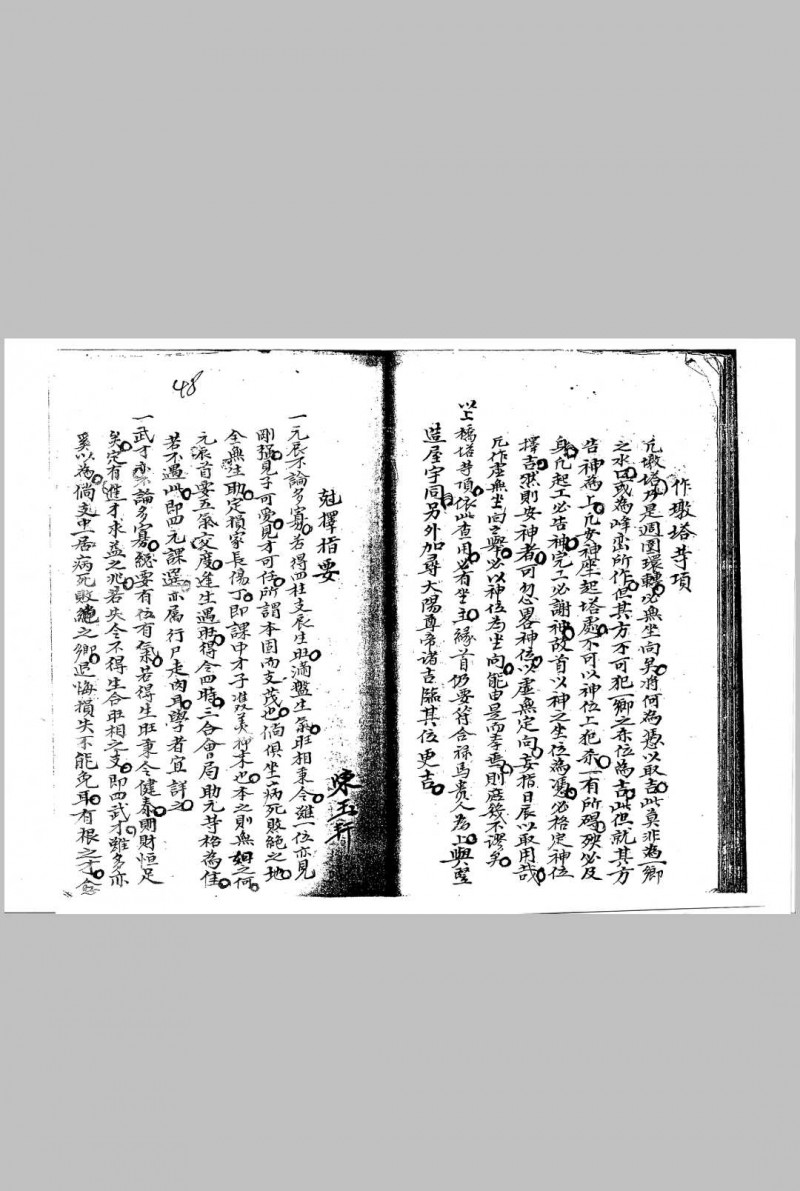 作墩塔䓁項
凢墩塔乃是週圍環轉必無坐向另将何為憑以取吉此莫非為一鄉
之水口或為峰峦所作但其方不可犯一鄉之赤位為吉此但就其方
告神為上凢安神座起塔處不可以神位上犯赤一有所碍殃必及
身凢起工必告神完工必謝神故首以神之坐位為憑必格定神位
擇吉然則安神者可忽畧神位以虛無定向妄指日辰以取用哉
凢作虛無坐向之舉必以神位為坐向能由是而奉無則庶幾不謬矣
以上橋塔䓁項依此查用必看坐主緣首仍要符合祿馬貴人為上與竪
造屋宇同另外加尋大陽尊帝诸吉臨其位更吉
尅擇指要
陳玉軒
一元辰不論多寡若得四柱支辰生旺滿盤生氣旺相秉令雖一位亦見
剛強見子可愛見才可任所謂本固而支茂也倘俱坐病死敗絕之地
全無生助定損家長傷丁即課中才子雖美抑末也本之則無如之何
元辰首要五氣交度逢生遇旺得令四時三合會局助元䓁格為佳
若不遇此即四元課選亦属行尸走肉耳學者宜詳之
一武才亦論多寡總要有位有氣若得生旺秉令健泰則財恒足
矣定有進才求益之兆若失令不得生合旺相之支即四武才雖多亦
奚以為倘支中居病死敗絕之鄉退悔損失不能免耳有根之才愈
48